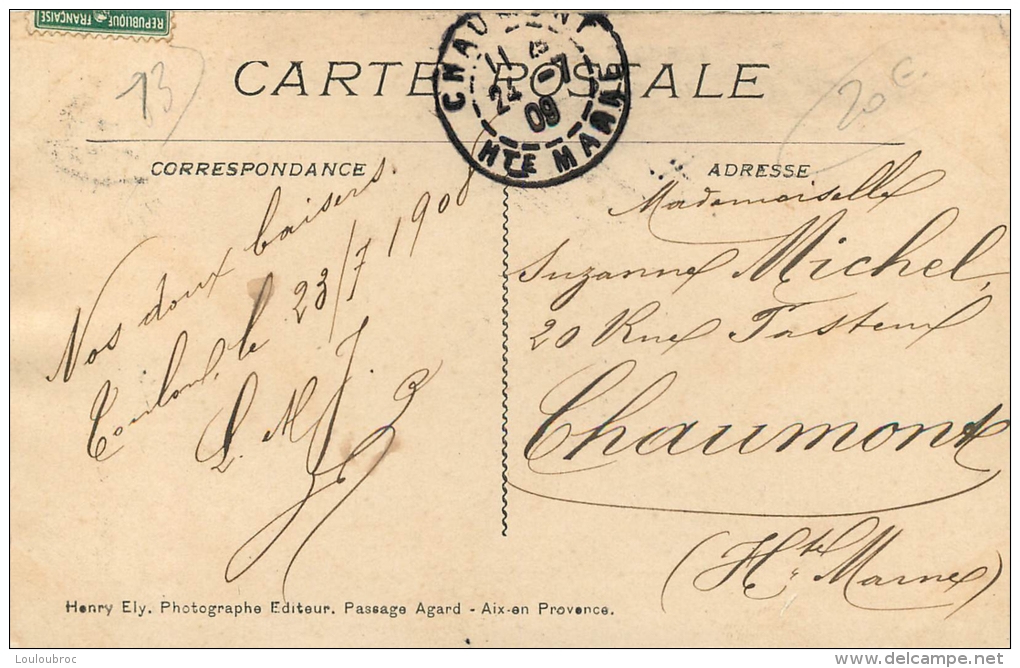 REPUBLIQUE FRANÇAISE
13
CARTE POSTALE
20 €.
CHAUMONT
11
24 - 7
09
HTE MARNE
CORRESPONDANCE
Nos doux baisers.
Toulon, le 23/7 1909
L. M. J.
ADRESSE
Mademoiselle
Suzanne Michel,
20 Rue Pasteur
Chaumont
(Hte Marne)
Henry Ely. Photographe Editeur. Passage Agard - Aix-en Provence.
Louloubroc
delcampe.net